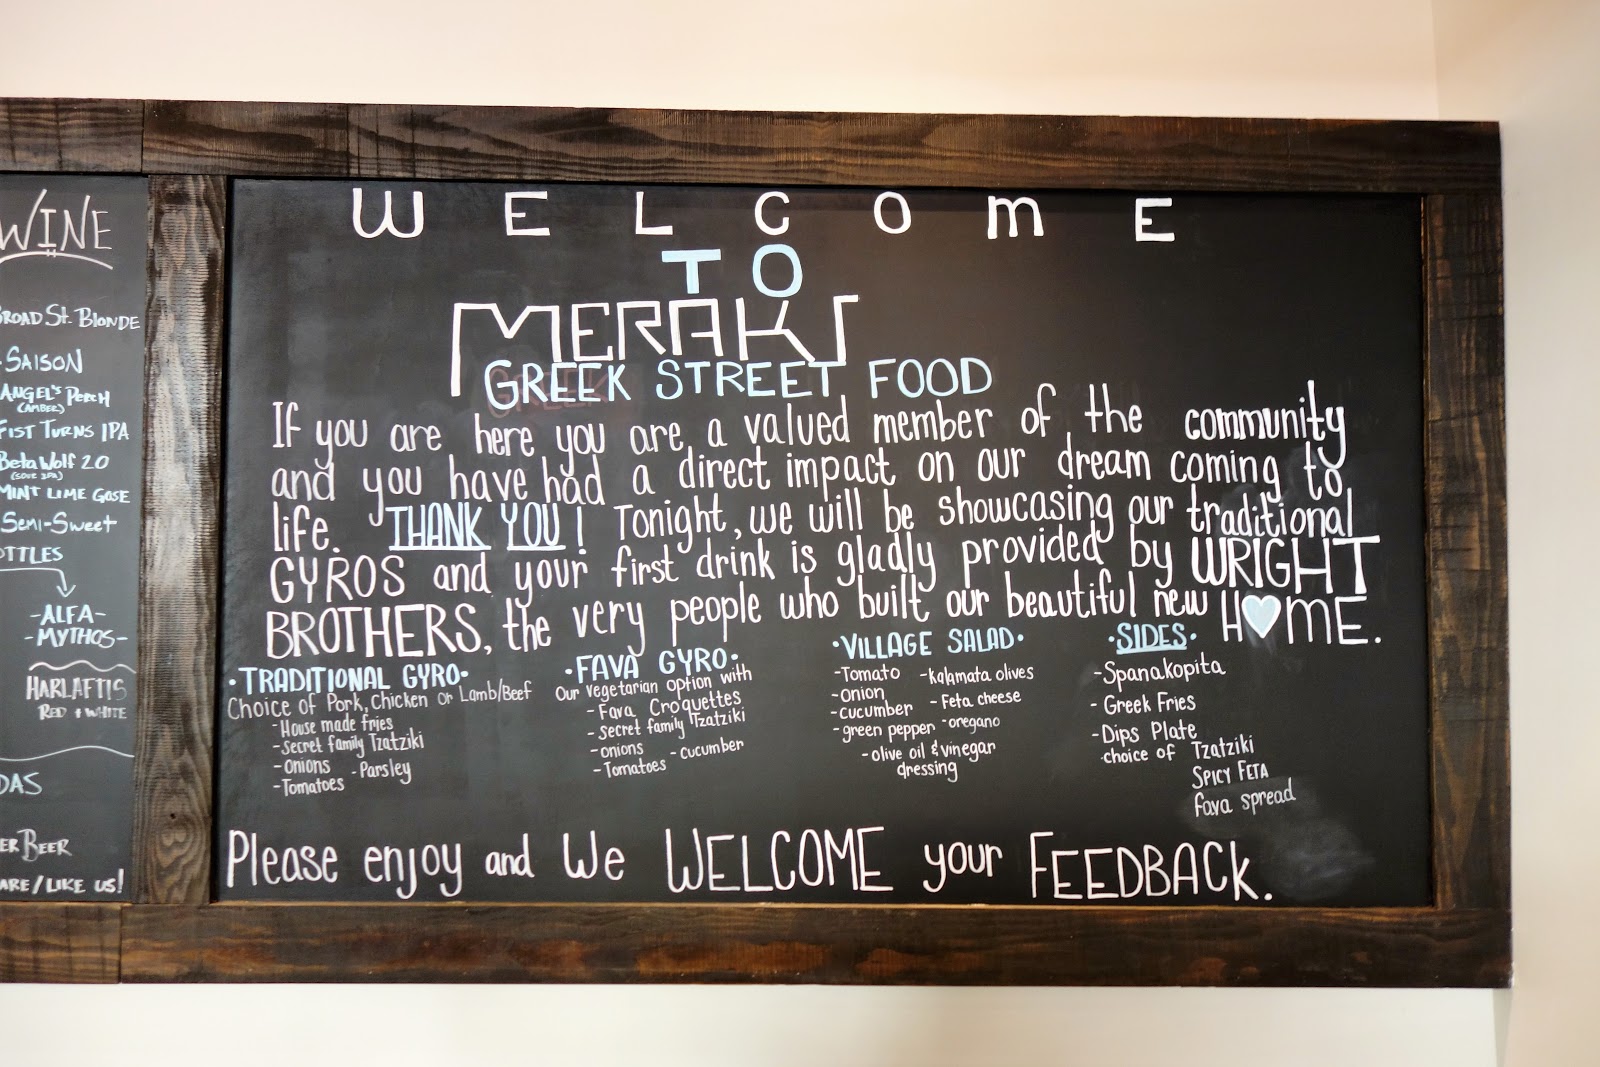 WINE
BROAD ST. BLONDE
SAISON
ANGEL'S PERCH
(AMBER)
FIST TURNS IPA
Beta Wolf 2.0
MINT LIME GOSE
SEMI-SWEET
-ALFA-
-MYTHOS-
HARLAFTIS
RED + WHITE
BEER
LIKE US!
WELCOME
TO
MERAKI
GREEK STREET FOOD
If you are here you are a valued member of the community
and you have had a direct impact on our dream coming to
life. THANK YOU! Tonight, we will be showcasing our traditional
GYROS and your first drink is gladly provided by WRIGHT
BROTHERS, the very people who built our beautiful new H♥ME.
·TRADITIONAL GYRO·
Choice of Pork, Chicken or Lamb/Beef
-House made fries
-Secret family Tzatziki
-Onions -Parsley
-Tomatoes
·FAVA GYRO·
Our vegetarian option with
-Fava Croquettes
-Secret family Tzatziki
-onions -cucumber
-Tomatoes
·VILLAGE SALAD·
-Tomato -kalamata olives
-onion -Feta cheese
-cucumber
-green pepper -oregano
-olive oil & vinegar
dressing
·SIDES·
-Spanakopita
-Greek Fries
-Dips Plate
choice of Tzatziki
SPICY FETA
fava spread
Please enjoy and We WELCOME your FEEDBACK.